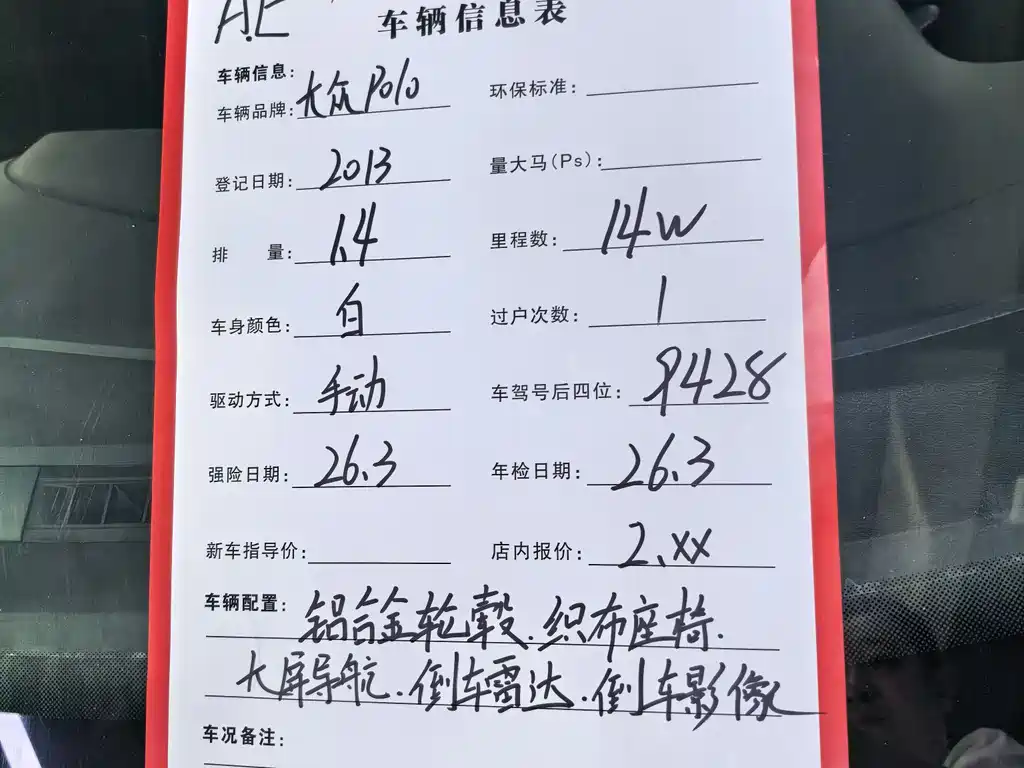 车辆信息表
车辆信息:
车辆品牌: 大众Polo 环保标准:
登记日期: 2013 量大马(Ps):
排 量: 1.4 里程数: 14w
车身颜色: 白 过户次数: 1
驱动方式: 手动 车驾号后四位: 9428
强险日期: 26.3 年检日期: 26.3
新车指导价: 店内报价: 2.xx
车辆配置: 铝合金轮毂.织布座椅.
大屏导航.倒车雷达.倒车影像
车况备注: